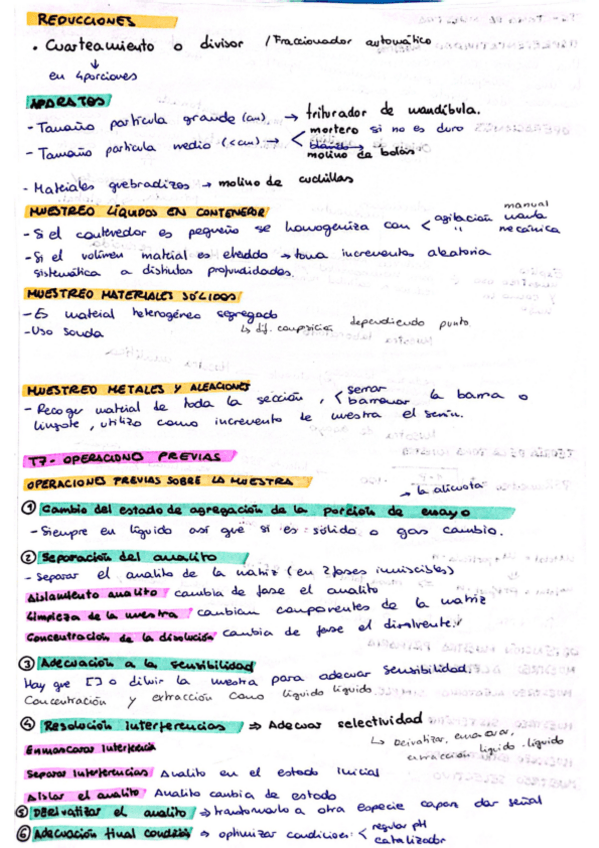 REDUCCIONES
• Cuarteamiento o divisor / Fraccionador automático
↓
en 4 porciones
APARATOS
- Tamaño partícula grande (cm) → triturador de mandíbula.
- Tamaño partícula medio (<cm) → < mortero si no es duro
molino de bolas
- Materiales quebradizos → molino de cuchillas
MUESTREO LÍQUIDOS EN CONTENEDOR
- Si el contenedor es pequeño se homogeniza con < agitación manual
" mecánica
- Si el volúmen matrial es elevado → toma incrementos aleatoria
sistemática a distintas profundidades.
MUESTREO MATERIALES SÓLIDOS
- Es material heterogéneo segregado
↳ dif. composición dependiendo punto
- Uso sonda
MUESTREO METALES Y ALEACIONES
- Recoger material de toda la sección, < serrar
barrenar la barra o
lingote, utilizo como incremento de muestra el serrín.
T7- OPERACIONES PREVIAS
OPERACIONES PREVIAS SOBRE LA MUESTRA
→ "la alícuota"
① Cambio del estado de agregación de la porción de ensayo
- Siempre en líquido así que si es sólido o gas cambio.
② Separación del analito
- Separar el analito de la matriz (en 2 fases inmiscibles)
Aislamiento analito cambia de fase el analito
Limpieza de la muestra cambian componentes de la matriz
Concentración de la disolución cambia de fase el disolvente.
③ Adecuación a la sensibilidad
Hay que [ ] o diluir la muestra para adecuar sensibilidad.
Concentración y extracción como líquido líquido
④ Resolución interferencias ⇒ Adecuar selectividad
↳ Derivatizar, enmascarar,
extracción líquido-líquido
Enmascarar interferencia
Separar interferencias Analito en el estado inicial
Aislar el analito Analito cambia de estado
⑤ Derivatizar el analito ⇒ transformarlo a otra especie capaz dar señal
⑥ Adecuación final condición ⇒ optimizar condiciones < regular pH
catalizador